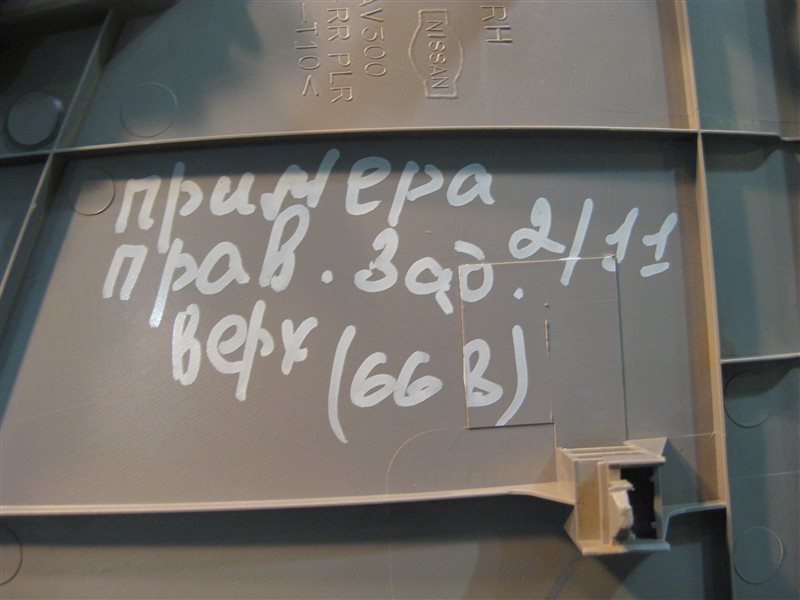 RH
NISSAN
AV300
RR PLR
-T10<
примера
прав. Зад. 2/11
верх (66В)